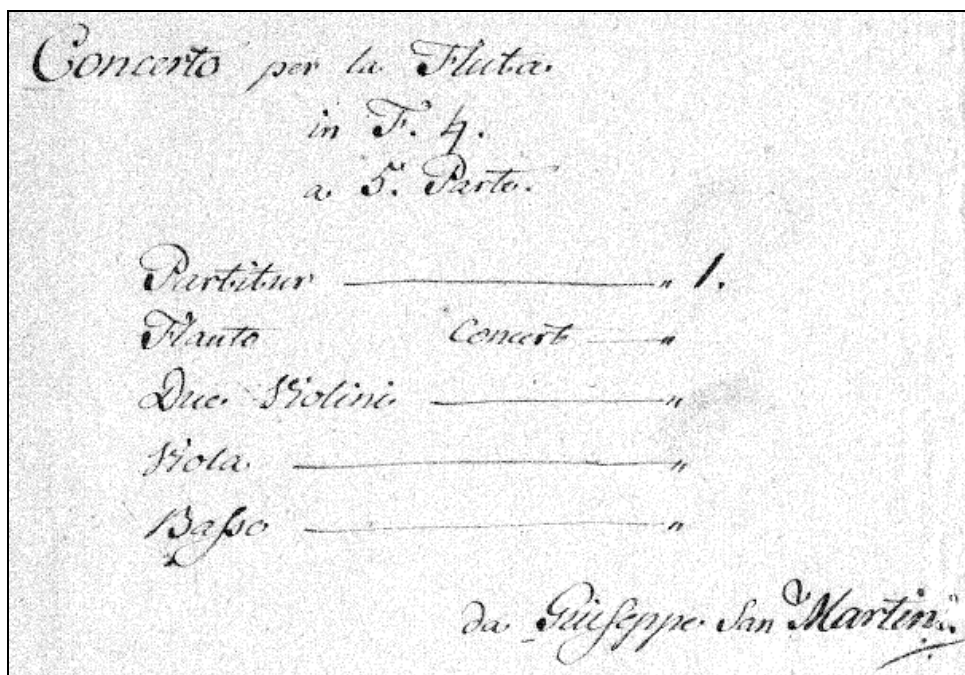 Concerto per la Fluta.
in F. 4.
a 5. Parte.
Partitur „ 1.
Flauto Concert „
Due Violini „
Viola „
Basso „
da Giuseppe San Martini